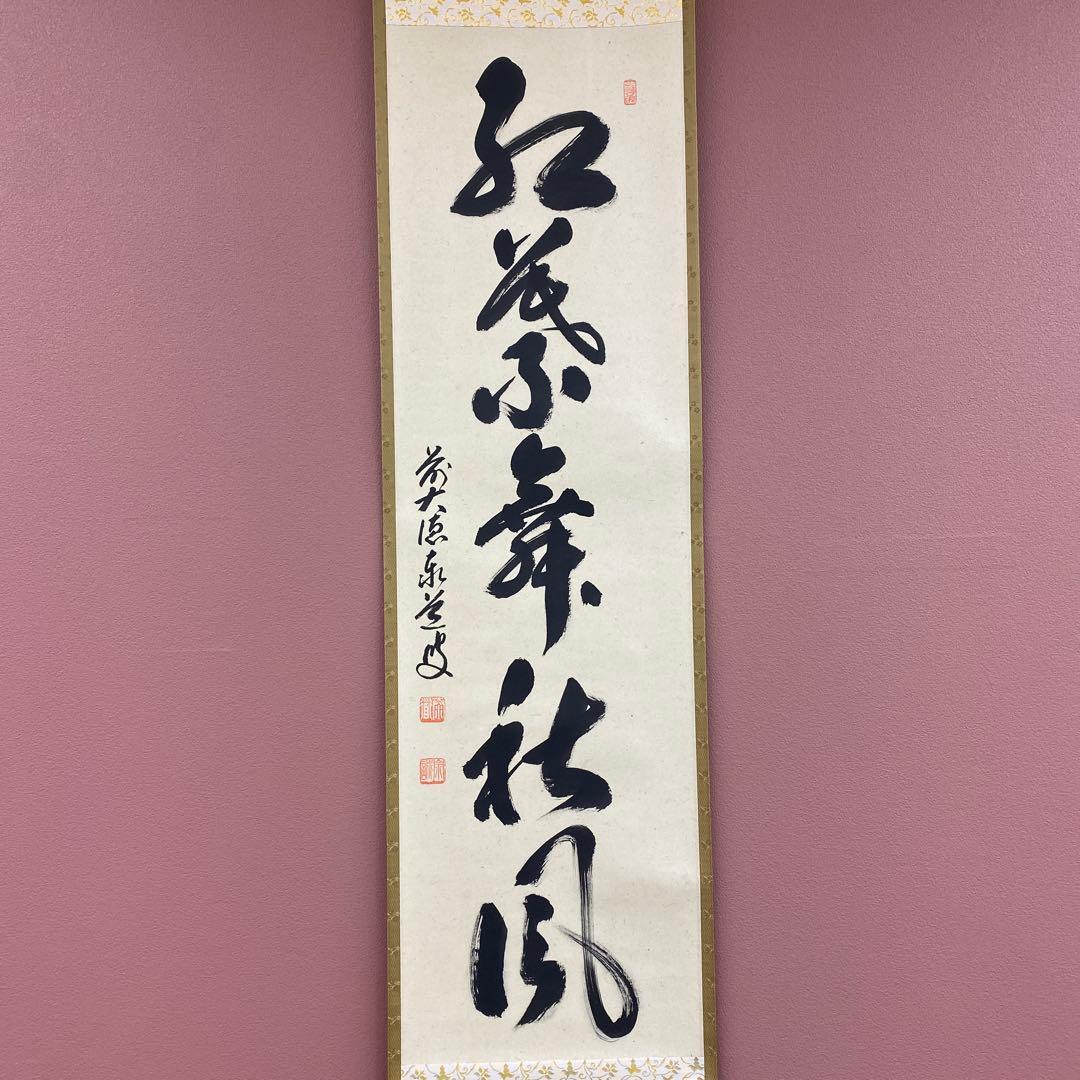 紅葉舞秋風
前大徳泉道叟